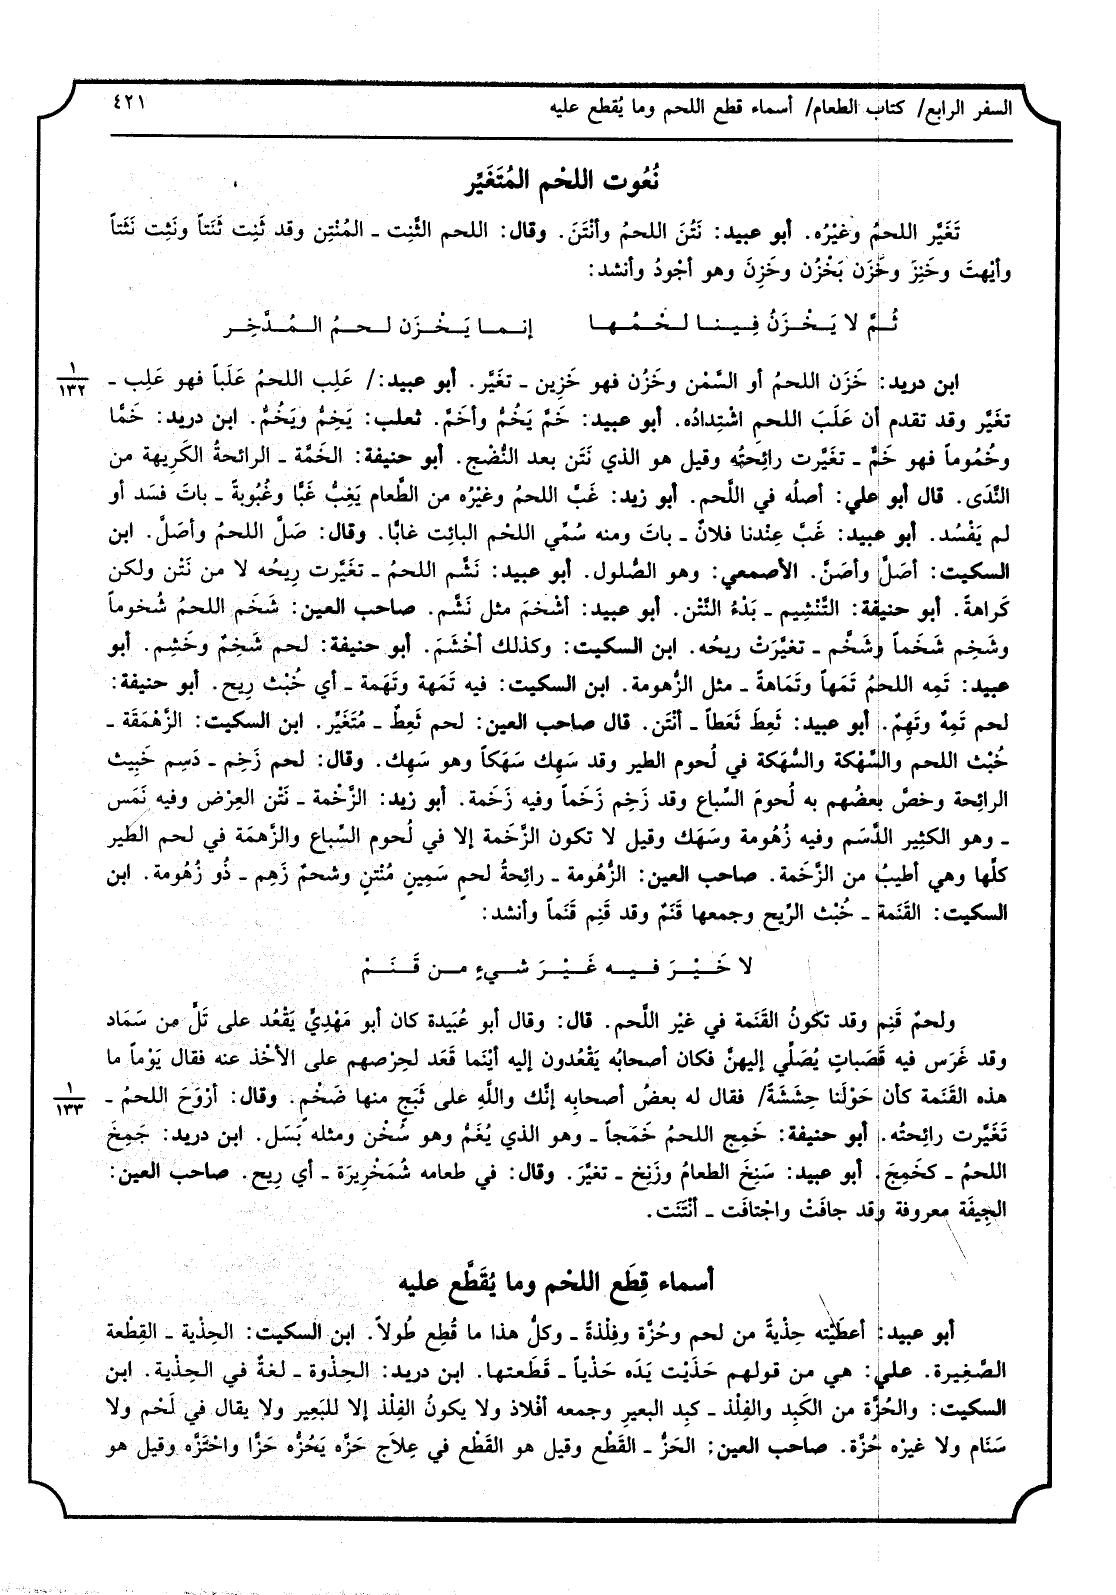 السفر الرابع/ كتاب الطعام/ أسماء قطع اللحم وما يُقطع عليه ٤٢١
نُعُوت اللحْم المُتَغَيِّر
تَغَيَّر اللحمُ وغَيْرُه. أبو عبيد: نَتُنَ اللحمُ وأنْتَنَ. وقال: اللحم الثَّنِت ـ المُنْتِن وقد ثَنِت ثَنَتاً ونَثِت نَثَتاً
وأيْهتَ وخَنِزَ وخَزَن يَخْزُن وخَزِنَ وهو أجْودُ وأنشد:
ثُمَّ لا يَخْزَنُ فِينا لحْمُها إنما يَخْزَن لحمُ المُدَّخِر
ابن دريد: خَزَن اللحمُ أو السَّمْن وخَزُن فهو خَزِين ـ تغَيَّر. أبو عبيد:/ عَلِب اللحمُ عَلَباً فهو عَلِب ـ
١/١٣٢
تغَيَّر وقد تقدم أن عَلَبَ اللحمِ اشْتِدادُه. أبو عبيد: خَمَّ يَخُمُّ وأخَمَّ. ثعلب: يَخِمُّ ويَخُمُّ. ابن دريد: خَمًّا
وخُمُوماً فهو خَمٌّ ـ تغَيَّرت رائِحتُه وقيل هو الذي نَتَن بعد النُّضْج. أبو حنيفة: الخَمَّة ـ الرائحةُ الكَرِيهة من
النَّدَى. قال أبو علي: أصلُه في اللَّحم. أبو زيد: غَبَّ اللحمُ وغيْرُه من الطَّعام يَغِبُّ غَبًّا وغُبُوبةً ـ باتَ فسَد أو
لم يَفْسُد. أبو عبيد: غَبَّ عِنْدنا فلانٌ ـ باتَ ومنه سُمِّي اللحْم البائِت غابًّا. وقال: صَلَّ اللحمُ وأصَلَّ. ابن
السكيت: أصَلَّ وأصَنَّ. الأصمعي: وهو الصُّلول. أبو عبيد: نَشَّم اللحمُ ـ تغَيَّرت رِيحُه لا من نَتْن ولكن
كَراهةً. أبو حنيفة: التَّنْشِيم ـ بَدْءُ النَّتْن. أبو عبيد: أشْخمَ مثل نَشَّم. صاحب العين: شَخَم اللحمُ شُخوماً
وشَخِم شَخَماً وشَخَّم ـ تغيَّرَتْ ريحُه. ابن السكيت: وكذلك أخْشَمَ. أبو حنيفة: لحم شَخِمٌ وخَشِم. أبو
عبيد: تَمِه اللحمُ تَمَهاً وتَمَاهةً ـ مثل الزُّهومة. ابن السكيت: فيه تَمَهة وتَهَمة ـ أي خُبْث رِيح. أبو حنيفة:
لحم تَمِهٌ وتَهِمٌ. أبو عبيد: ثَعِطَ ثَعَطاً ـ أنْتَن. قال صاحب العين: لحم ثَعِطٌ ـ مُتَغَيِّر. ابن السكيت: الزَّهْمَقَة ـ
خُبْث اللحم والسَّهْكة والسُّهَكة في لُحوم الطير وقد سَهِك سَهَكاً وهو سَهِك. وقال: لحم زَخِم ـ دَسِم خَبِيث
الرائحة وخصَّ بعضُهم به لُحومَ السِّباع وقد زَخِم زَخَماً وفيه زَخَمة. أبو زيد: الزَّخْمة ـ نَتْن العِرْض وفيه نَمَس
ـ وهو الكثِير الدَّسَم وفيه زُهُومة وسَهَك وقيل لا تكون الزَّخَمة إلا في لُحوم السِّباع والزَّهمَة في لحم الطَّير
كلِّها وهي أطيبُ من الزَّخَمة. صاحب العين: الزُّهُومة ـ رائِحةُ لحمٍ سَمِينٍ مُنْتنٍ وشحمٌ زَهِم ـ ذُو زُهُومة. ابن
السكيت: القَنَمة ـ خُبْث الرِّيح وجمعها قَنَمٌ وقد قَنِم قَنَماً وأنشد:
لا خَيْرَ فيه غَيْرَ شيءٍ من قَنَمْ
ولحمٌ قَنِم وقد تكونُ القَنَمة في غيْر اللَّحم. قال: وقال أبو عُبَيدة كان أبو مَهْدِيٍّ يَقْعُد على تَلٍّ من سَمَاد
وقد غَرَس فيه قَصَباتٍ يُصَلِّي إليهنَّ فكان أصحابُه يَقْعُدون إليه أيْنَما قَعَد لحِرْصهم على الأخْذ عنه فقال يَوْماً ما
هذه القَنَمة كأن حَوْلَنا حِشَشَةً/ فقال له بعضُ أصحابِه إنَّك واللَّهِ على ثَبَجٍ منها ضَخْمٍ. وقال: أرْوَحَ اللحمُ ـ
١/١٣٣
تَغَيَّرت رائِحتُه. أبو حنيفة: خَمِج اللحمُ خَمَجاً ـ وهو الذي يُغَمُّ وهو سُخْن ومثله بَسَل. ابن دريد: جَمِخَ
اللحمُ ـ كخَمِجَ. أبو عبيد: سَنِخَ الطعامُ وزَنِخ ـ تغيَّرَ. وقال: في طعامه شُمَخْرِيرَة ـ أي رِيح. صاحب العين:
الجِيفَة معروفة وقد جافَتْ واجْتافَت ـ أنْتَنَت.
أسماء قِطَع اللحْم وما يُقَطَّع عليه
أبو عبيد: أعطَيْته حِذْيةً من لحم وحُزَّة وفِلْذةً ـ وكلُّ هذا ما قُطِع طُولاً. ابن السكيت: الحِذْية ـ القِطْعة
الصَّغِيرة. علي: هي من قولهم حَذَيْت يَدَه حَذْياً ـ قَطَعتها. ابن دريد: الحِذْوة ـ لغةٌ في الحِذْية. ابن
السكيت: والحُزَّة من الكَبِد والفِلْذ ـ كبِد البعيرِ وجمعه أفْلاذ ولا يكونُ الفِلْذ إلا للبَعِير ولا يقال في لَحْم ولا
سَنَام ولا غيرْه حُزَّة. صاحب العين: الحَزُّ ـ القَطْع وقيل هو القَطْع في عِلاَج حَزَّه يَحُزُّه حَزًّا واحْتَزَّه وقيل هو